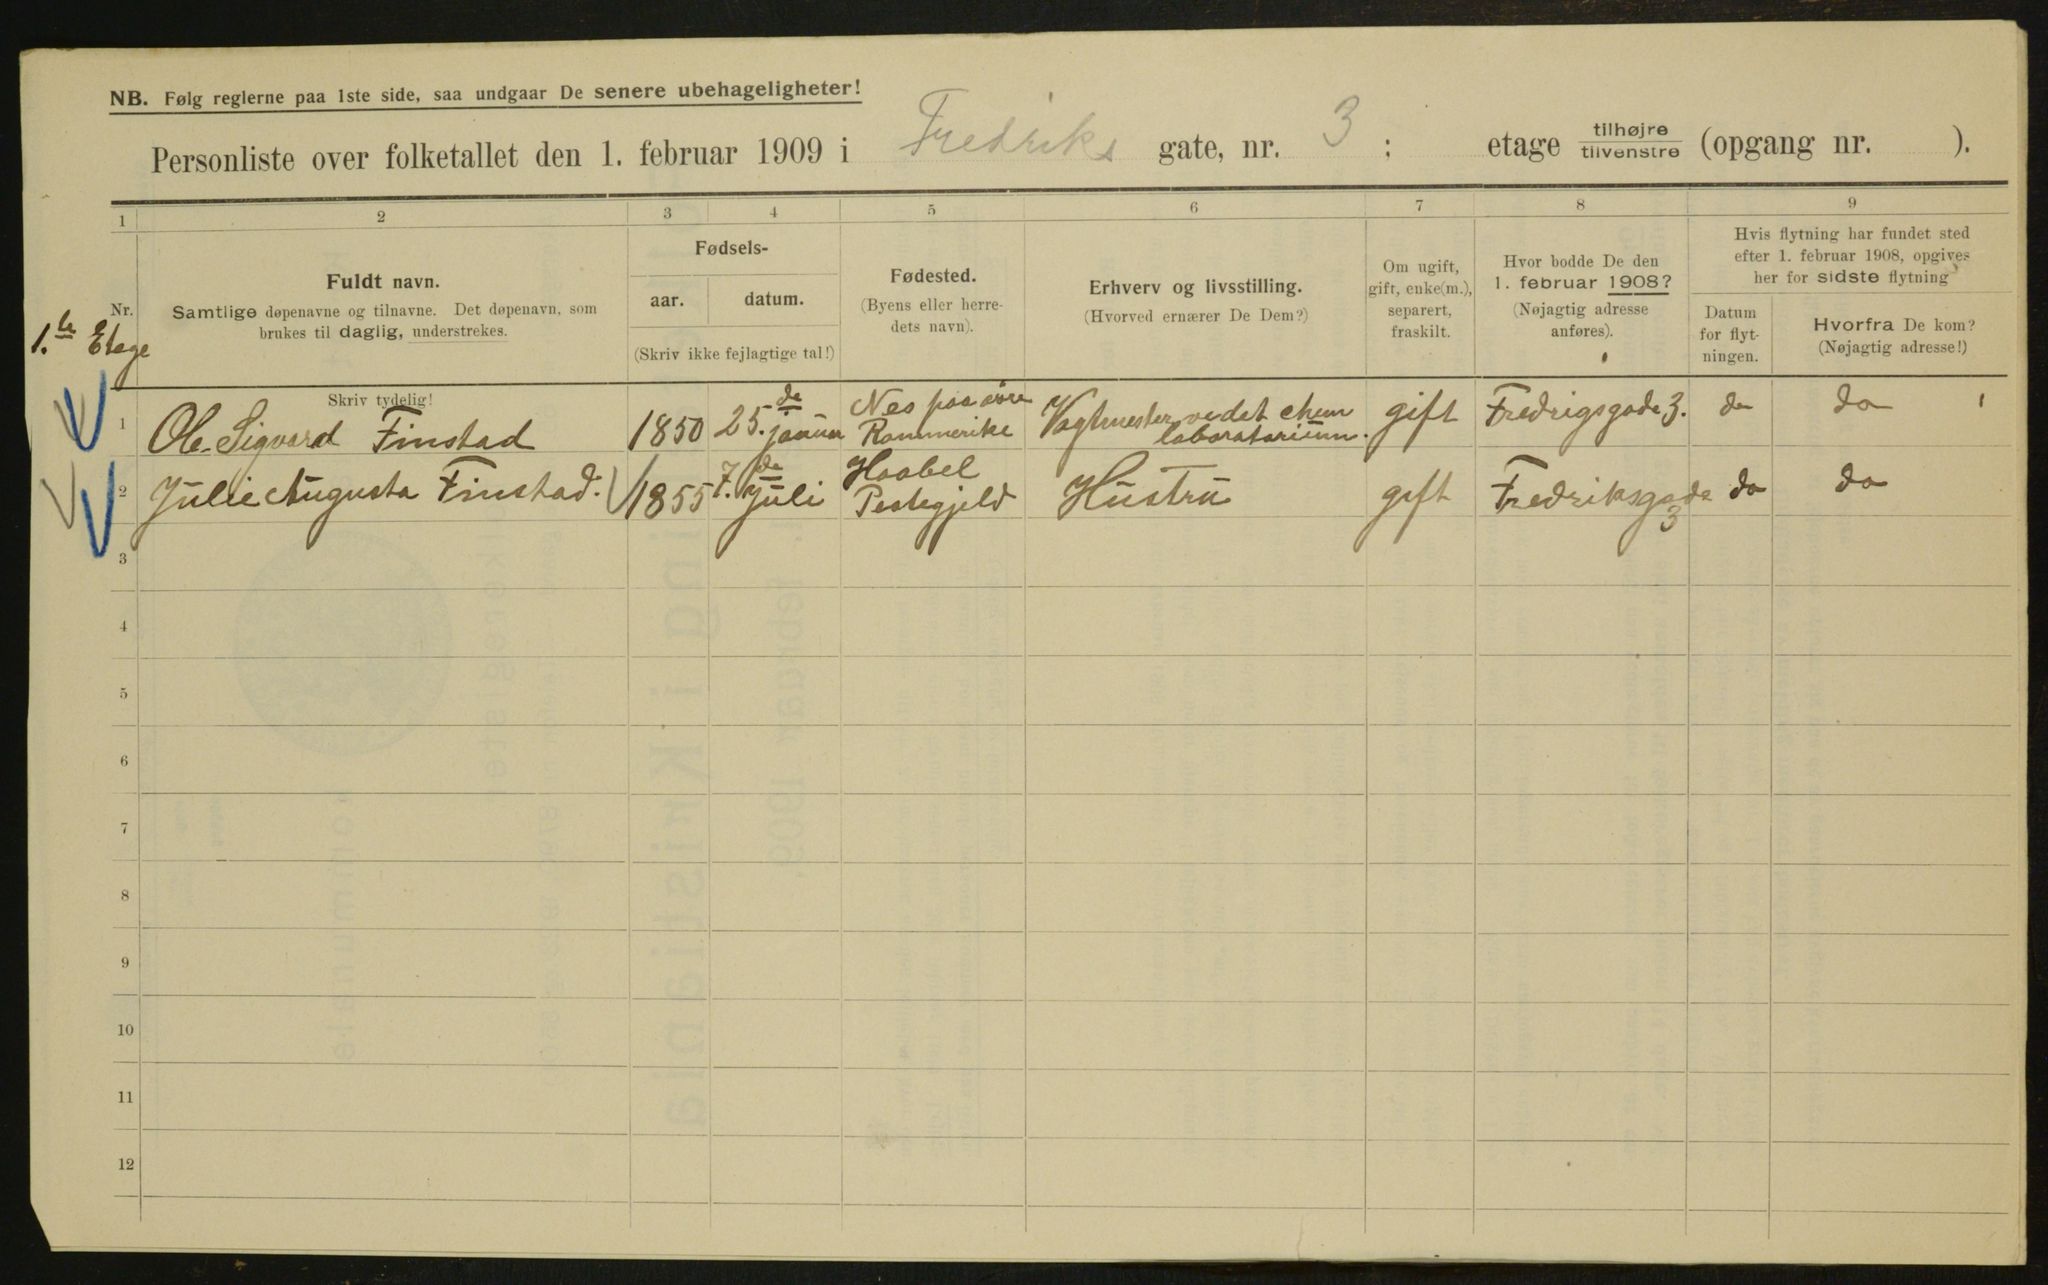 NB. Følg reglerne paa 1ste side, saa undgaar De senere ubehageligheter!
Personliste over folketallet den 1. februar 1909 i Fredriks gate, nr. 3 ; etage tilhøjre/tilvenstre (opgang nr. ).
1 2 3 4 5 6 7 8 9
Nr.
Fuldt navn.
Samtlige døpenavne og tilnavne. Det døpenavn, som
brukes til daglig, understrekes.
Fødsels-
aar. datum.
(Skriv ikke fejlagtige tal!)
Fødested.
(Byens eller herre-
dets navn).
Erhverv og livsstilling.
(Hvorved ernærer De Dem?)
Om ugift,
gift, enke(m.),
separert,
fraskilt.
Hvor bodde De den
1. februar 1908?
(Nøjagtig adresse
anføres).
Hvis flytning har fundet sted
efter 1. februar 1908, opgives
her for sidste flytning
Datum
for flyt-
ningen.
Hvorfra De kom?
(Nøjagtig adresse!)
1.te Etage
Skriv tydelig!
1 Ole Sigvard Finstad 1850 25.de januar Nes paa øvre Rommerike Vagtmester vedet chem laboratorium. gift Fredrigsgade 3. do do
2 Julie Augusta Finstad. 1855 7.de Juli Haabel Prestegjeld Hustru gift Fredriksgade 3 do do
3
4
5
6
7
8
9
10
11
12